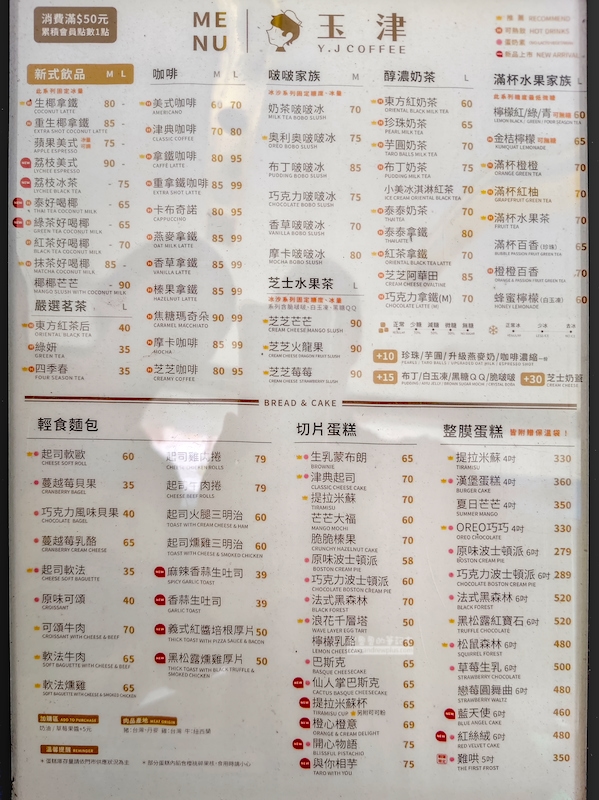 消費滿$50元
累積會員點數1點
ME
NU
玉津
Y.J COFFEE
推薦 RECOMMEND
可熱飲 HOT DRINKS
蛋奶素
新品上市 NEW ARRIVAL
新式飲品 M L
此系列固定冰量
生椰拿鐵 80 -
COCONUT LATTE
重生椰拿鐵 85 -
EXTRA SHOT COCONUT LATTE
蘋果美式 75 -
APPLE ESPRESSO
荔枝美式 90 -
LYCHEE BLACK
荔枝冰茶 - 75
LYCHEE BLACK TEA
泰好喝椰 - 65
THAI TEA COCONUT MILK
綠茶好喝椰 - 65
GREEN TEA COCONUT MILK
紅茶好喝椰 - 70
BLACK TEA COCONUT MILK
抹茶好喝椰 - 80
MATCHA COCONUT MILK
椰椰芒芒 - 90
MANGO SLUSH WITH COCONUT MILK
嚴選茗茶 L
東方紅茶后 40
ORIENTAL BLACK TEA
綠妍 35
GREEN TEA
四季春 35
FOUR SEASON TEA
咖啡 M L
美式咖啡 60 70
AMERICANO
津典咖啡 70 80
CLASSIC COFFEE
拿鐵咖啡 80 95
CAFFE LATTE
重拿鐵咖啡 85 99
EXTRA SHOT LATTE
卡布奇諾 80 95
CAPPUCCINO
燕麥拿鐵 85 99
OAT MILK LATTE
香草拿鐵 85 99
VANILLA LATTE
榛果拿鐵 85 99
HAZELNUT LATTE
焦糖瑪奇朵 90 99
CARAMEL MACCHIATO
摩卡咖啡 85 99
MOCHA
芝芝咖啡 80 95
CREAMY COFFEE
啵啵家族 M
冰沙系列固定甜度、冰量
奶茶啵啵冰 70
MILK TEA BOBO SLUSH
奧利奧啵啵冰 75
OREO BOBO SLUSH
布丁啵啵冰 85
PUDDING BOBO SLUSH
巧克力啵啵冰 75
CHOCOLATE BOBO SLUSH
香草啵啵冰 70
VANILLA BOBO SLUSH
摩卡啵啵冰 80
MOCHA BOBO SLUSH
芝士水果茶 L
冰沙系列固定甜度、冰量
芝芝芒芒 90
CREAM CHEESE MANGO SLUSH
芝芝火龍果 90
CREAM CHEESE DRAGON FRUIT SLUSH
芝芝莓莓 90
CREAM CHEESE STRAWBERRY SLUSH
醇濃奶茶 L
東方紅奶茶 60
ORIENTAL BLACK MILK TEA
珍珠奶茶 65
PEARL MILK TEA
芋圓奶茶 70
TARO BALLS MILK TEA
布丁奶茶 75
PUDDING MILK TEA
小美冰淇淋紅茶 70
ICE CREAM ORIENTAL BLACK TEA
泰泰奶茶 70
THAI TEA
泰泰拿鐵 80
THAI LATTE
紅茶拿鐵 70
ORIENTAL BLACK TEA LATTE
芝芝阿華田 85
CREAM CHEESE OVALTINE
巧克力拿鐵(M) 70
CHOCOLATE LATTE
滿杯水果家族 L
檸檬紅/綠/青 可無糖 60
金桔檸檬 可無糖 65
KUMQUAT LEMONADE
滿杯橙橙 70
ORANGE GREEN TEA
滿杯紅柚 70
GRAPEFRUIT GREEN TEA
滿杯水果茶 70
FRUIT TEA
滿杯百香(珍珠) 65
BUBBLE PASSION FRUIT GREEN TEA
橙橙百香 70
ORANGE & PASSION FRUIT GREEN TEA
蜂蜜檸檬(白玉凍) 60
HONEY LEMONADE
+10 珍珠/芋圓/升級燕麥奶/咖啡濃縮一份
+15 布丁/白玉凍/黑糖QQ/脆啵啵 +30 芝士奶蓋
BREAD & CAKE
輕食麵包
起司軟歐 60
CHEESE SOFT ROLL
蔓越莓貝果 35
CRANBERRY BAGEL
巧克力風味貝果 40
CHOCOLATE BAGEL
蔓越莓乳酪 65
CRANBERRY CREAM CHEESE
起司軟法 35
CHEESE SOFT BAGUETTE
原味可頌 40
CROISSANT
可頌牛肉 70
CROISSANT WITH CHEESE & BEEF
軟法牛肉 65
SOFT BAGUETTE WITH CHEESE & BEEF
軟法燻雞 65
SOFT BAGUETTE WITH CHEESE & SMOKED CHICKEN
起司雞肉捲 79
CHEESE CHICKEN ROLLS
起司牛肉捲 79
CHEESE BEEF ROLLS
起司火腿三明治 60
TOAST WITH CREAM CHEESE & HAM
起司燻雞三明治 60
TOAST WITH CHEESE & SMOKED CHICKEN
麻辣香蒜生吐司 39
SPICY GARLIC TOAST
香蒜生吐司 39
GARLIC TOAST
義式紅醬培根厚片 50
THICK TOAST WITH PIZZA SAUCE & BACON
黑松露燻雞厚片 50
THICK TOAST WITH BLACK TRUFFLE & SMOKED CHICKEN
加購區 ADD TO PURCHASE
奶油 / 草莓果醬+5元
肉品產地 MEAT ORIGIN
溫馨提醒 REMINDER
切片蛋糕
生乳蒙布朗 65
BROWNIE
津典起司 70
CLASSIC CHEESE CAKE
提拉米蘇 70
TIRAMISU
芒芒大福 60
MANGO MOCHI
脆脆榛果 70
CRUNCHY HAZELNUT CAKE
原味波士頓派 58
BOSTON CREAM PIE
巧克力波士頓派 60
CHOCOLATE BOSTON CREAM PIE
法式黑森林 70
BLACK FOREST
浪花千層塔 50
WAVE LAYER EGG TART
檸檬乳酪 69
LEMON CHEESECAKE
巴斯克 65
BASQUE CHEESECAKE
仙人掌巴斯克 65
CACTUS BASQUE CHEESECAKE
提拉米蘇杯 65
TIRAMISU CUP
橙心橙意 69
ORANGE & CHEESE CAKE
開心物語 75
BLISSFUL DELIGHT
與你相芋 75
TARO WITH YOU
整膜蛋糕 皆附贈保溫袋！
提拉米蘇 4吋 330
TIRAMISU
漢堡蛋糕 4吋 360
BURGER CAKE
夏日芒芒 4吋 350
SUMMER MANGO
OREO巧巧 4吋 330
OREO CHOCOLATE
原味波士頓派 6吋 279
BOSTON CREAM PIE
巧克力波士頓派 6吋 289
CHOCOLATE BOSTON CREAM PIE
法式黑森林 6吋 520
BLACK FOREST
黑松露紅寶石 6吋 520
TRUFFLE CHOCOLATE
松鼠森林 6吋 480
SQUIRREL FOREST
草莓生乳 6吋 500
STRAWBERRY CHOCOLATE
戀莓圓舞曲 6吋 480
STRAWBERRY WALTZ
藍天使 6吋 460
BLUE ANGEL CAKE
紅絲絨 6吋 480
RED VELVET CAKE
難哄 5吋 350
THE FIRST FROST